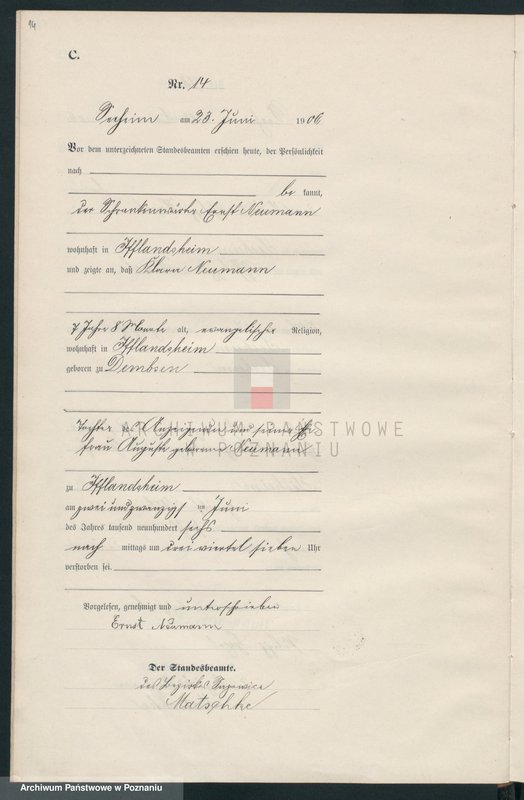 14
C.
Nr. 14
Seeheim am 23. Juni 1906
Vor dem unterzeichneten Standesbeamten erschien heute, der Persönlichkeit
nach
be kannt,
der Schrankenwärter Ernst Neumann
wohnhaft in Ifflandsheim
und zeigte an, daß Klara Neumann
7 Jahre 8 Monate alt, evangelischer Religion,
wohnhaft in Ifflandsheim
geboren zu Dembsen
Tochter des Anzeigenden und seiner Ehe
frau Auguste geborene Neumann
ARCHIWUM PAŃSTWOWE
W POZNANIU
zu Ifflandsheim
am zwei und zwanzigsten Juni
des Jahres tausend neunhundert sechs
nach mittags um drei viertel sieben Uhr
verstorben sei.
Vorgelesen, genehmigt und unterschrieben
Ernst Neumann
Der Standesbeamte.
des Bezirkes Sapowice
Matschke
Archiwum Państwowe w Poznaniu